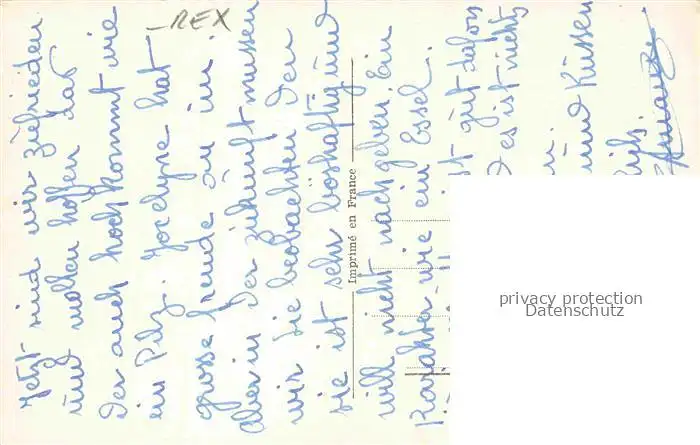 - REX
Jetzt sind wir zufrieden
und wollen hoffen das
der auch hoch kommt wie
ein Pilz. Jocelyne hat
grosse freude an im.
Aber in der zukunft müssen
wir sie beobachten den
sie ist sehr boshaftig und
will nicht nach geben. Ein
Karakter wie ein Essel.
ist gut dafons
es ist nichts
und Küssen
Imprimé en France
privacy protection
Datenschutz